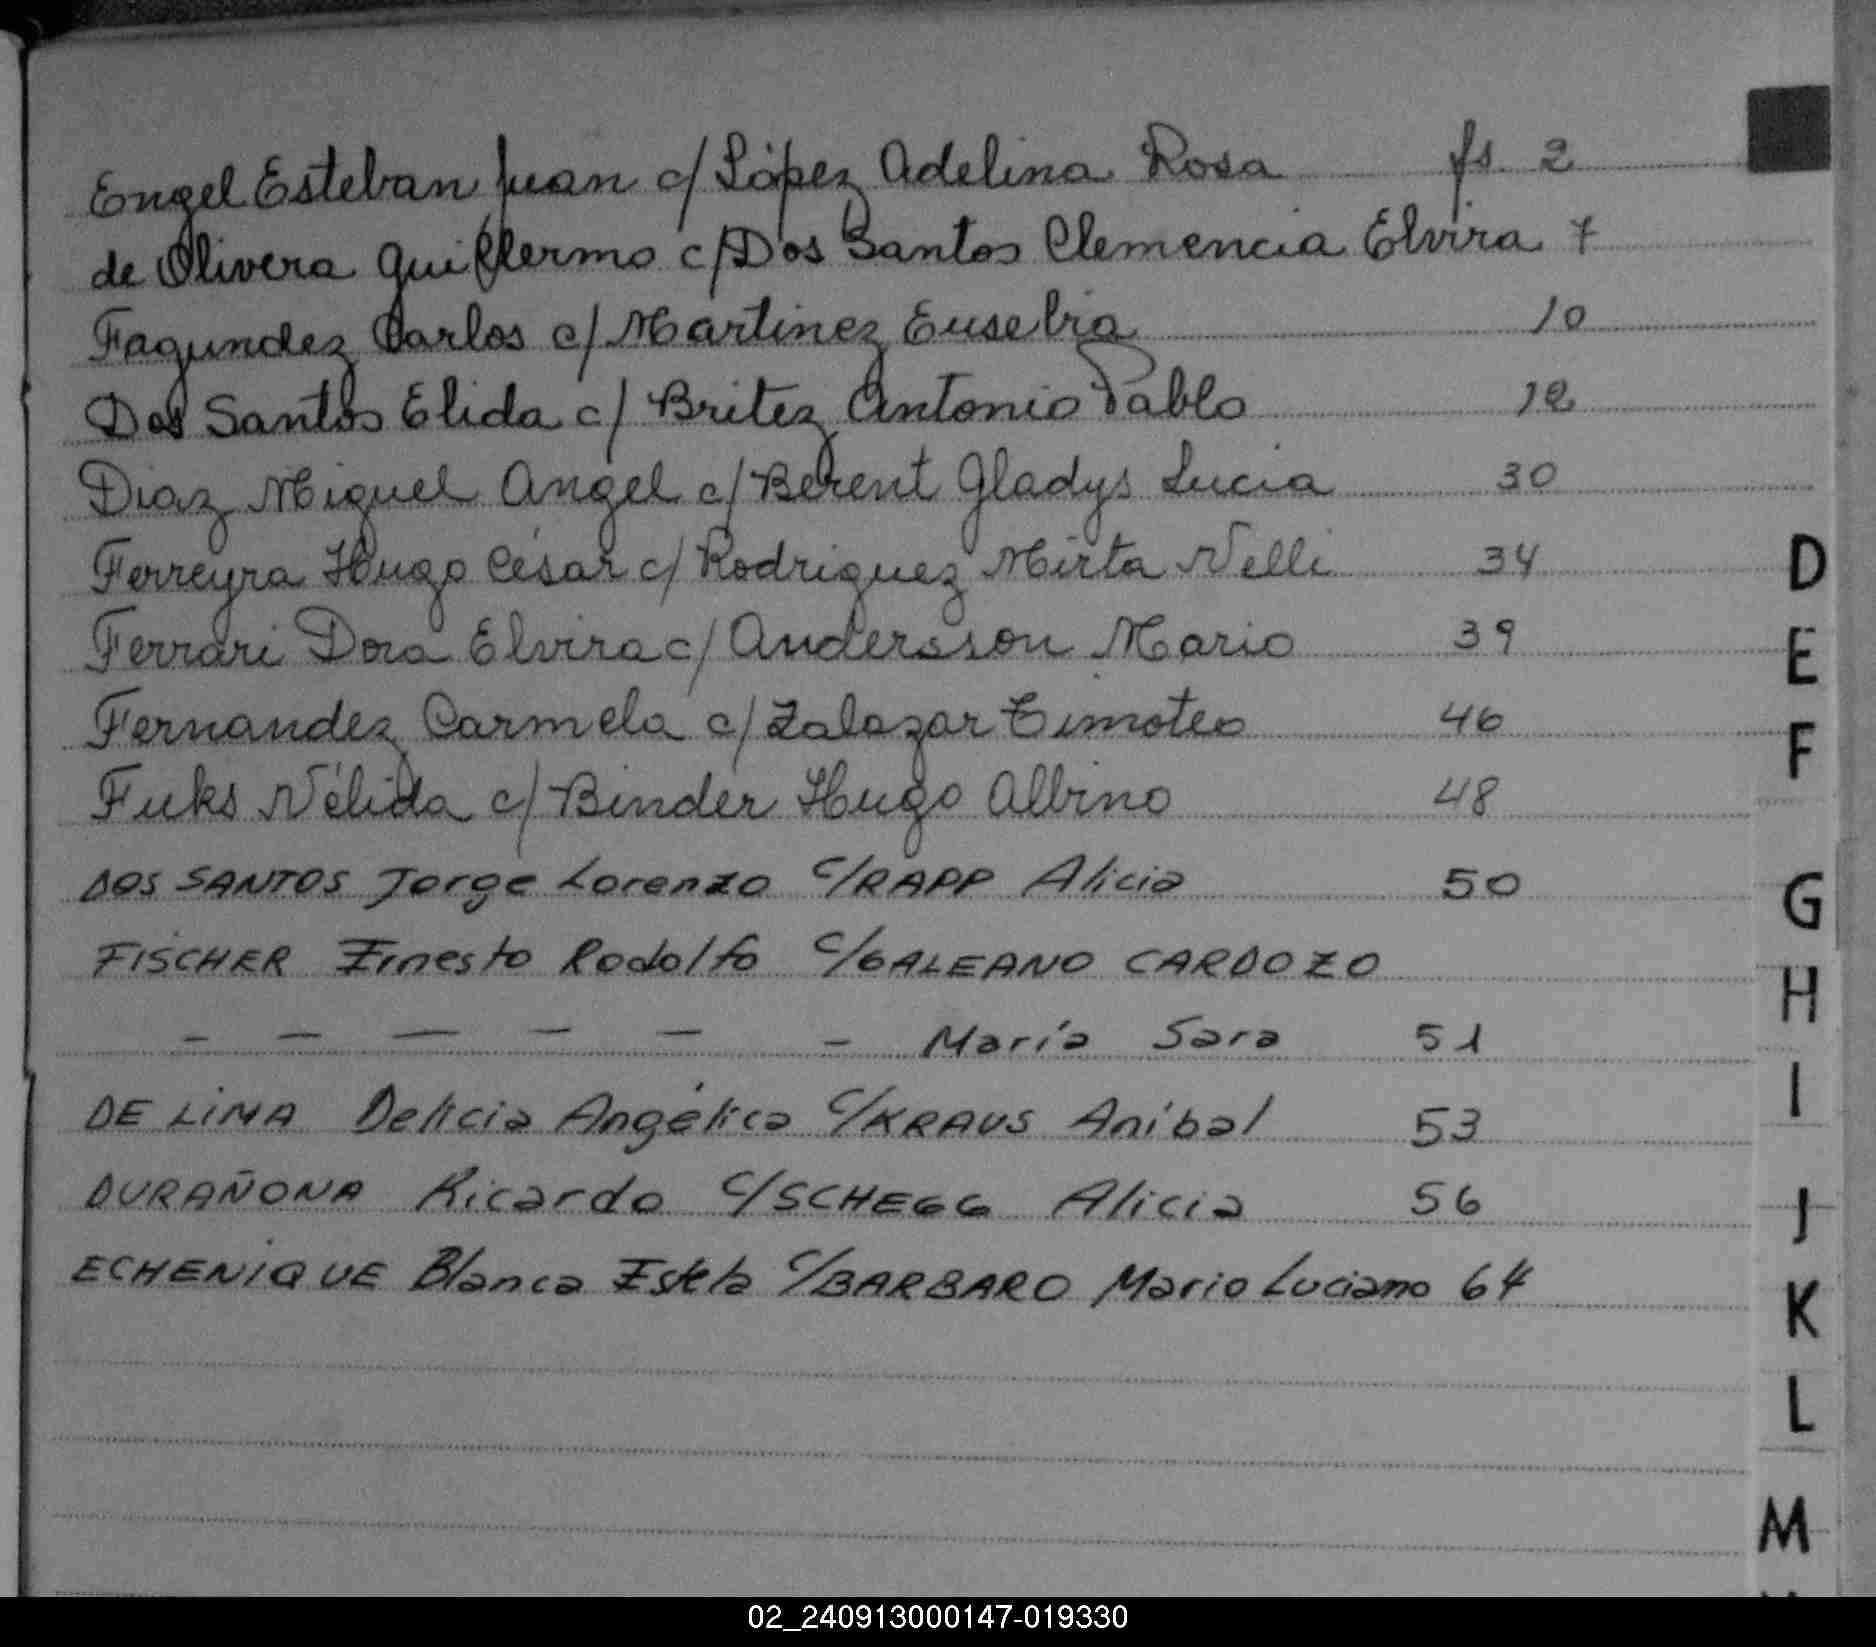 Engel Esteban Juan c/ López Adelina Rosa fs. 2
de Olivera Guillermo c/ Dos Santos Clemencia Elvira 7
Fagundez Carlos c/ Martinez Eusebia 10
Dos Santos Elida c/ Britez Antonio Pablo 12
Diaz Miguel Angel c/ Berent Gladys Lucia 30
Ferreyra Hugo César c/ Rodriguez Mirta Nelli 34
Ferrari Dora Elvira c/ Andersson Mario 39
Fernandez Carmela c/ Zalazar Timoteo 46
Fuks Nélida c/ Binder Hugo Albino 48
DOS SANTOS Jorge Lorenzo C/RAPP Alicia 50
FISCHER Ernesto Rodolfo C/GALEANO CARDOZO
- - - - - - María Sara 51
DE LIMA Delicia Angélica C/KRAUS Aníbal 53
DURAÑONA Ricardo C/SCHEGG Alicia 56
ECHENIQUE Blanca Estela C/BARBARO Mario Luciano 64
D
E
F
G
H
I
J
K
L
M
02_240913000147-019330